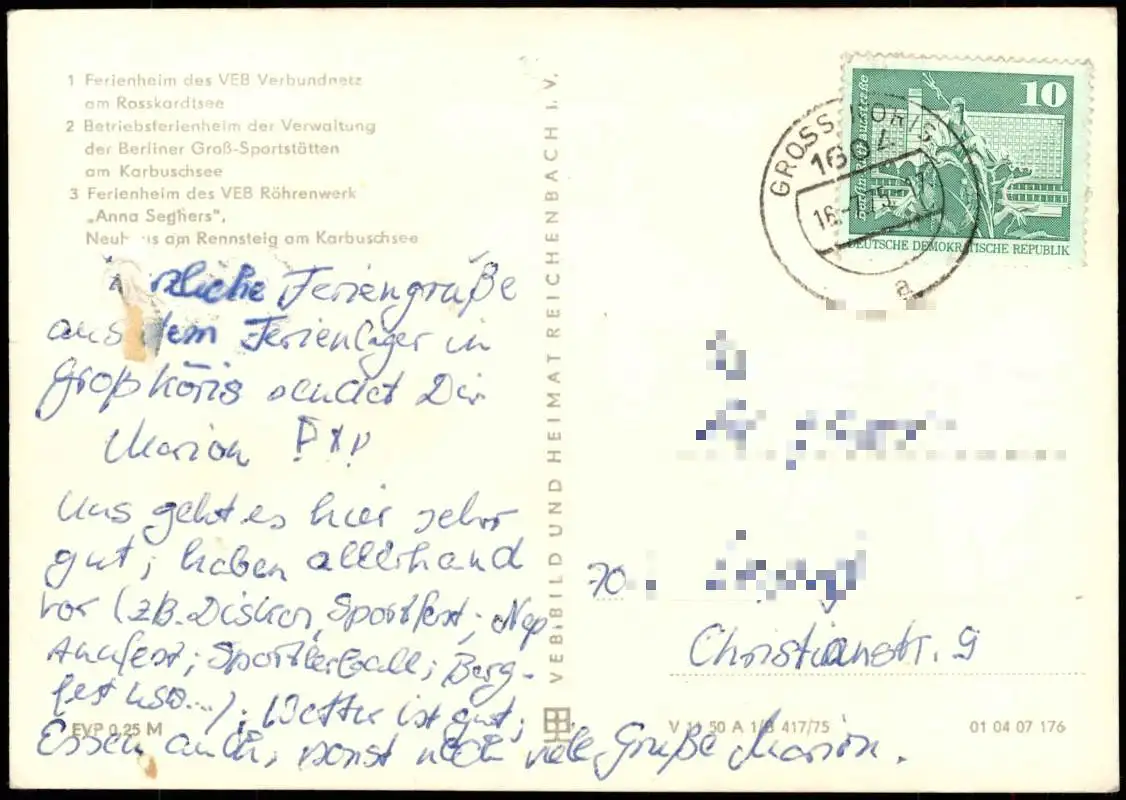 1 Ferienheim des VEB Verbundnetz
am Rosskardtsee
2 Betriebsferienheim der Verwaltung
der Berliner Groß-Sportstätten
am Karbuschsee
3 Ferienheim des VEB Röhrenwerk
„Anna Seghers“,
am Rennsteig am Karbuschsee
rzliche Feriengrüße
aus dem Ferienlager in
Großköris sendet Dir
Marion
Uns geht es hier sehr
gut; haben allerhand
vor (z.B. Diskos, Sportfest; Nep
tunfest; Sportlerball; Berg-
fest usw...); Wetter ist gut;
Essen auch; sonst noch viele Grüße Marion.
EVP 0,25 M
VEB BILD UND HEIMAT REICHENBACH I. V.
GROSS KÖRIS
1604
a
10
DEUTSCHE DEMOKRATISCHE REPUBLIK
70
Christianstr. 9
V 11 50 A 1/B 417/75
01 04 07 176